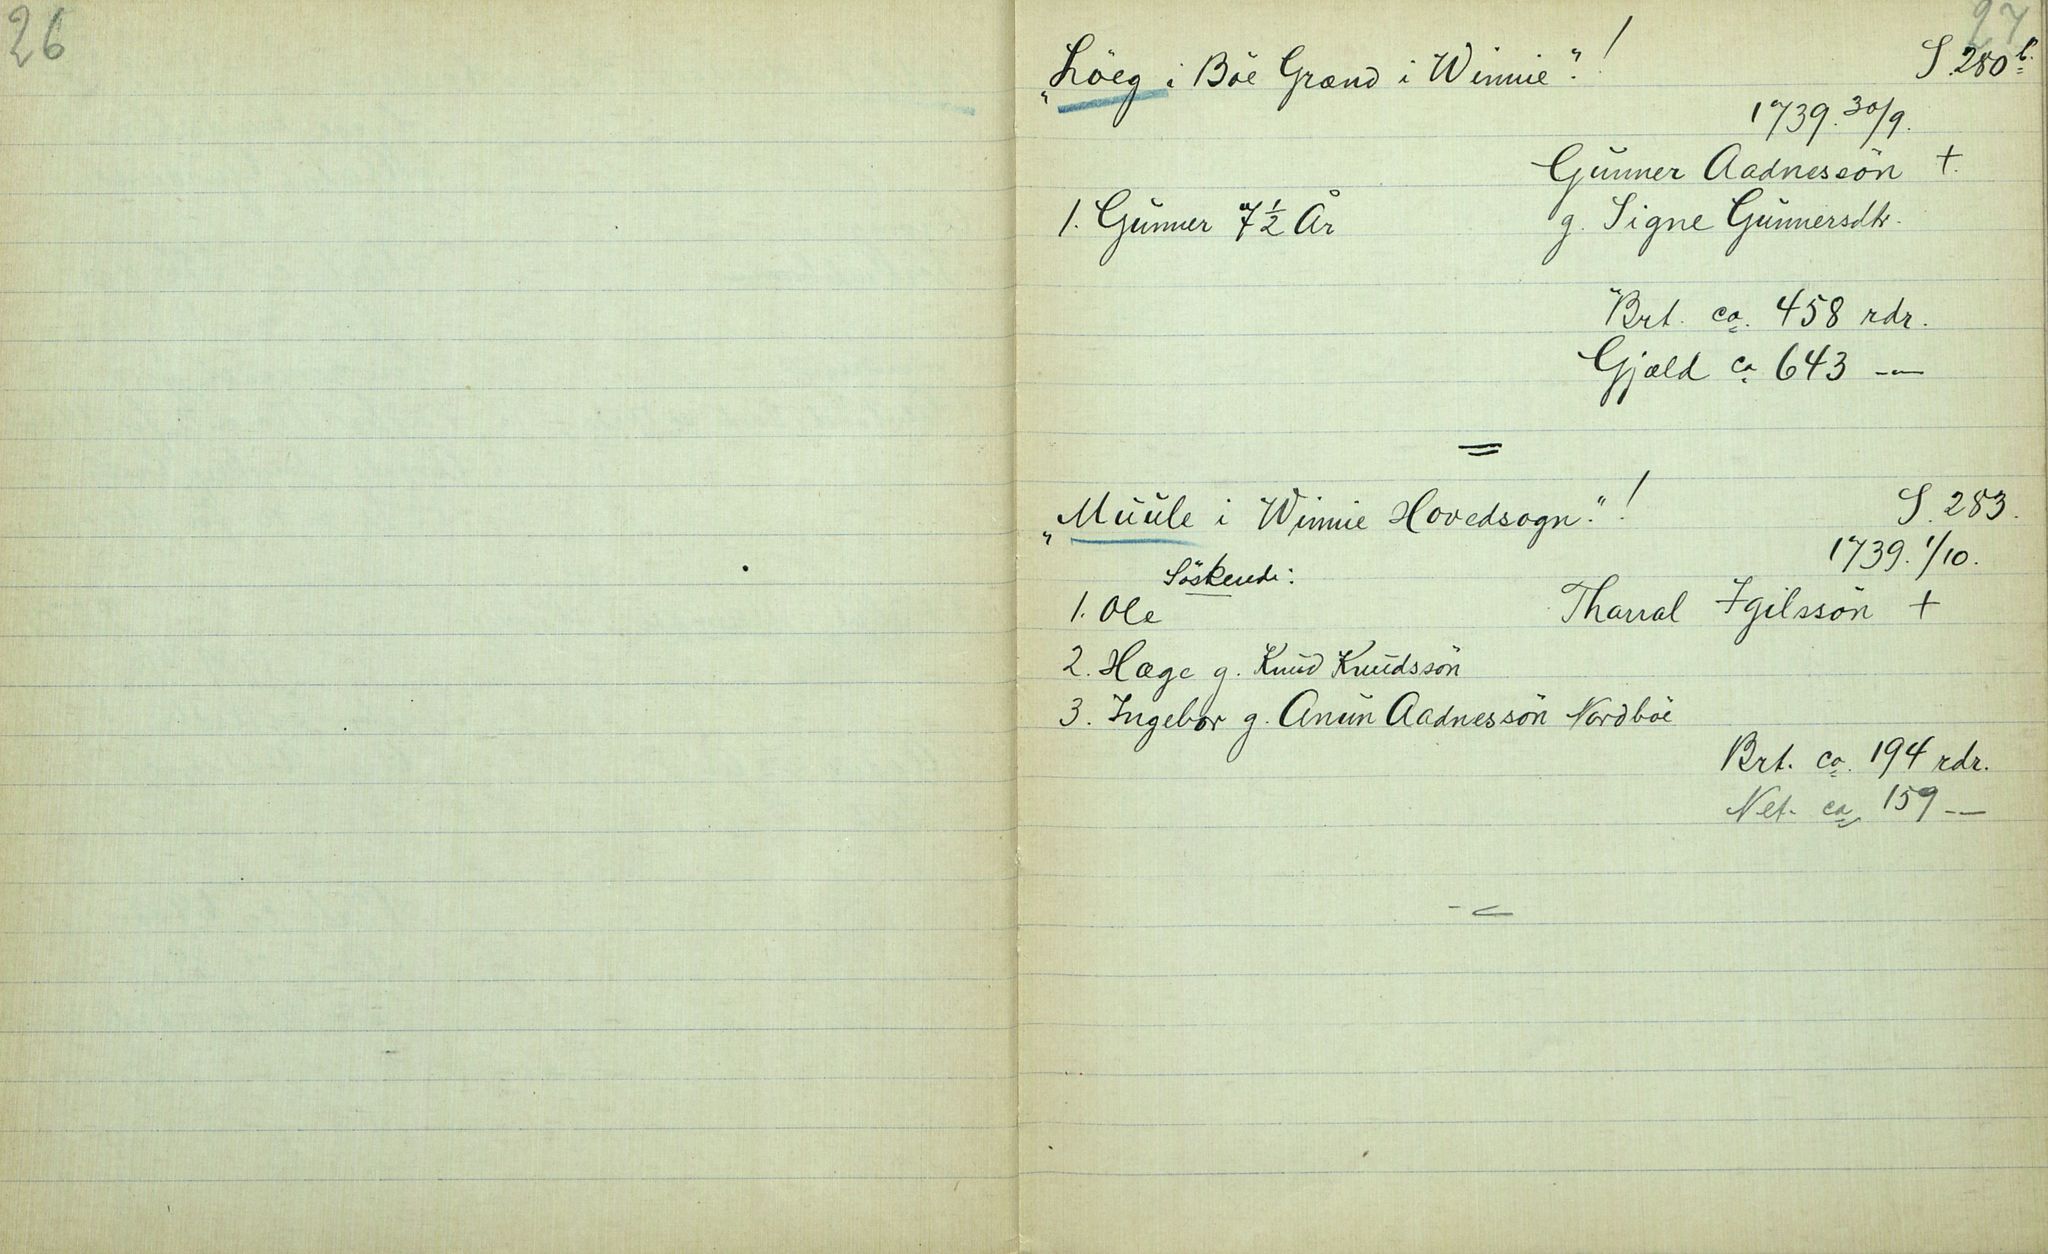 26
27
„Löeg i Böe Grænd i Winnie“!
S. 280 b.
1739. 30/9.
Gunner Aadnessön +.
1. Gunner 7 ½ År
g. Signe Gunnersdtr.
Brt. ca. 458 rdr.
Gjæld ca 643 —
„Muule i Winnie Hovedsogn.“!
S. 283.
1739. 1/10.
Söskende:
1. Ole
Tharral Egilssön +
2. Hæge g. Knud Knudssön
3. Ingebor g. Anun Aadnessön Nordböe
Brt. ca. 194 rdr.
Net. ca. 159 —